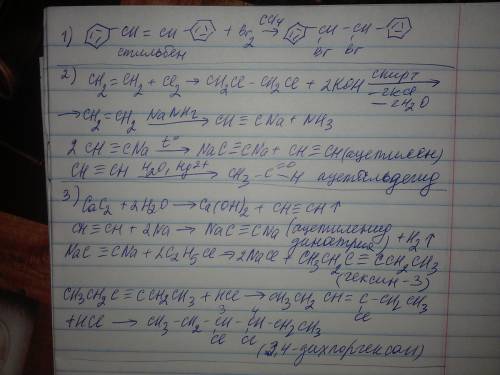 1) CH = CH + Br₂ CCl₄→ CH – CH
Br Br
стильбен
2) CH₂=CH₂ + Cl₂ → CH₂Cl – CH₂Cl + 2KOH спирт→
–2KCl
–2H₂O
→ CH=CH₂ NaNH₂→ CH≡CNa + NH₃
2 CH≡CNa t°→ NaC≡CNa + CH≡CH (ацетилен)
CH≡CH H₂O, Hg²⁺→ CH₃–C=O H ацетальдегид
3) CaC₂ + 2H₂O → Ca(OH)₂ + CH≡CH↑
CH≡CH + 2Na → NaC≡CNa (ацетиленид
динатрия) + H₂↑
NaC≡CNa + 2C₂H₅Cl → 2NaCl + CH₃CH₂C≡CCH₂CH₃
(гексин-3)
CH₃CH₂C≡CCH₂CH₃ + HCl → CH₃CH₂CH=C–CH₂CH₃
Cl
+HCl → CH₃–CH₂–CH–CH–CH₂CH₃
3 4
Cl Cl
(3,4-дихлоргексан)